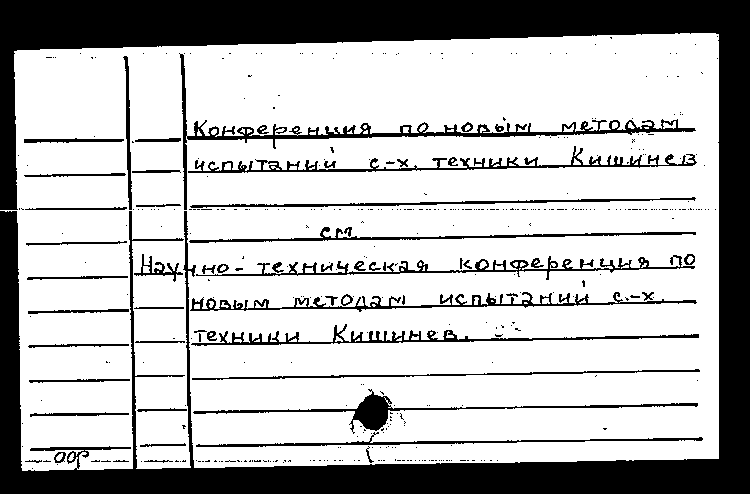 Конференция по новым методам
испытаний с.-х. техники Кишинев
см
Научно-техническая конференция по
новым методам испытаний с.-х.
техники Кишинев.